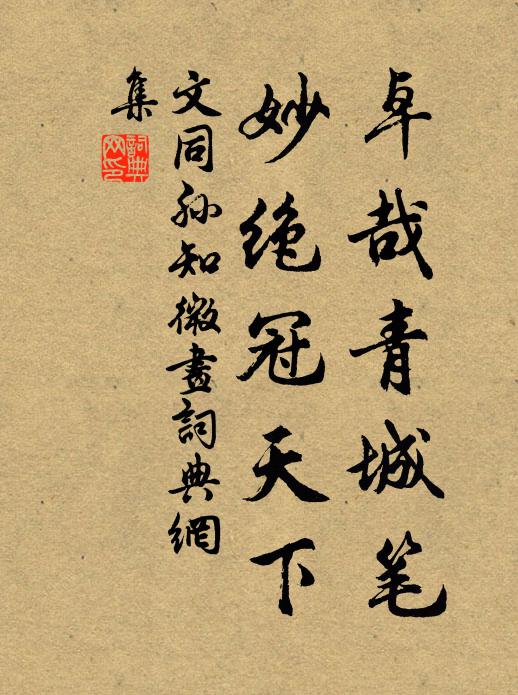 卓哉青城笔
妙绝冠天下
文同孙知微畫詞典網
集
詞典网印